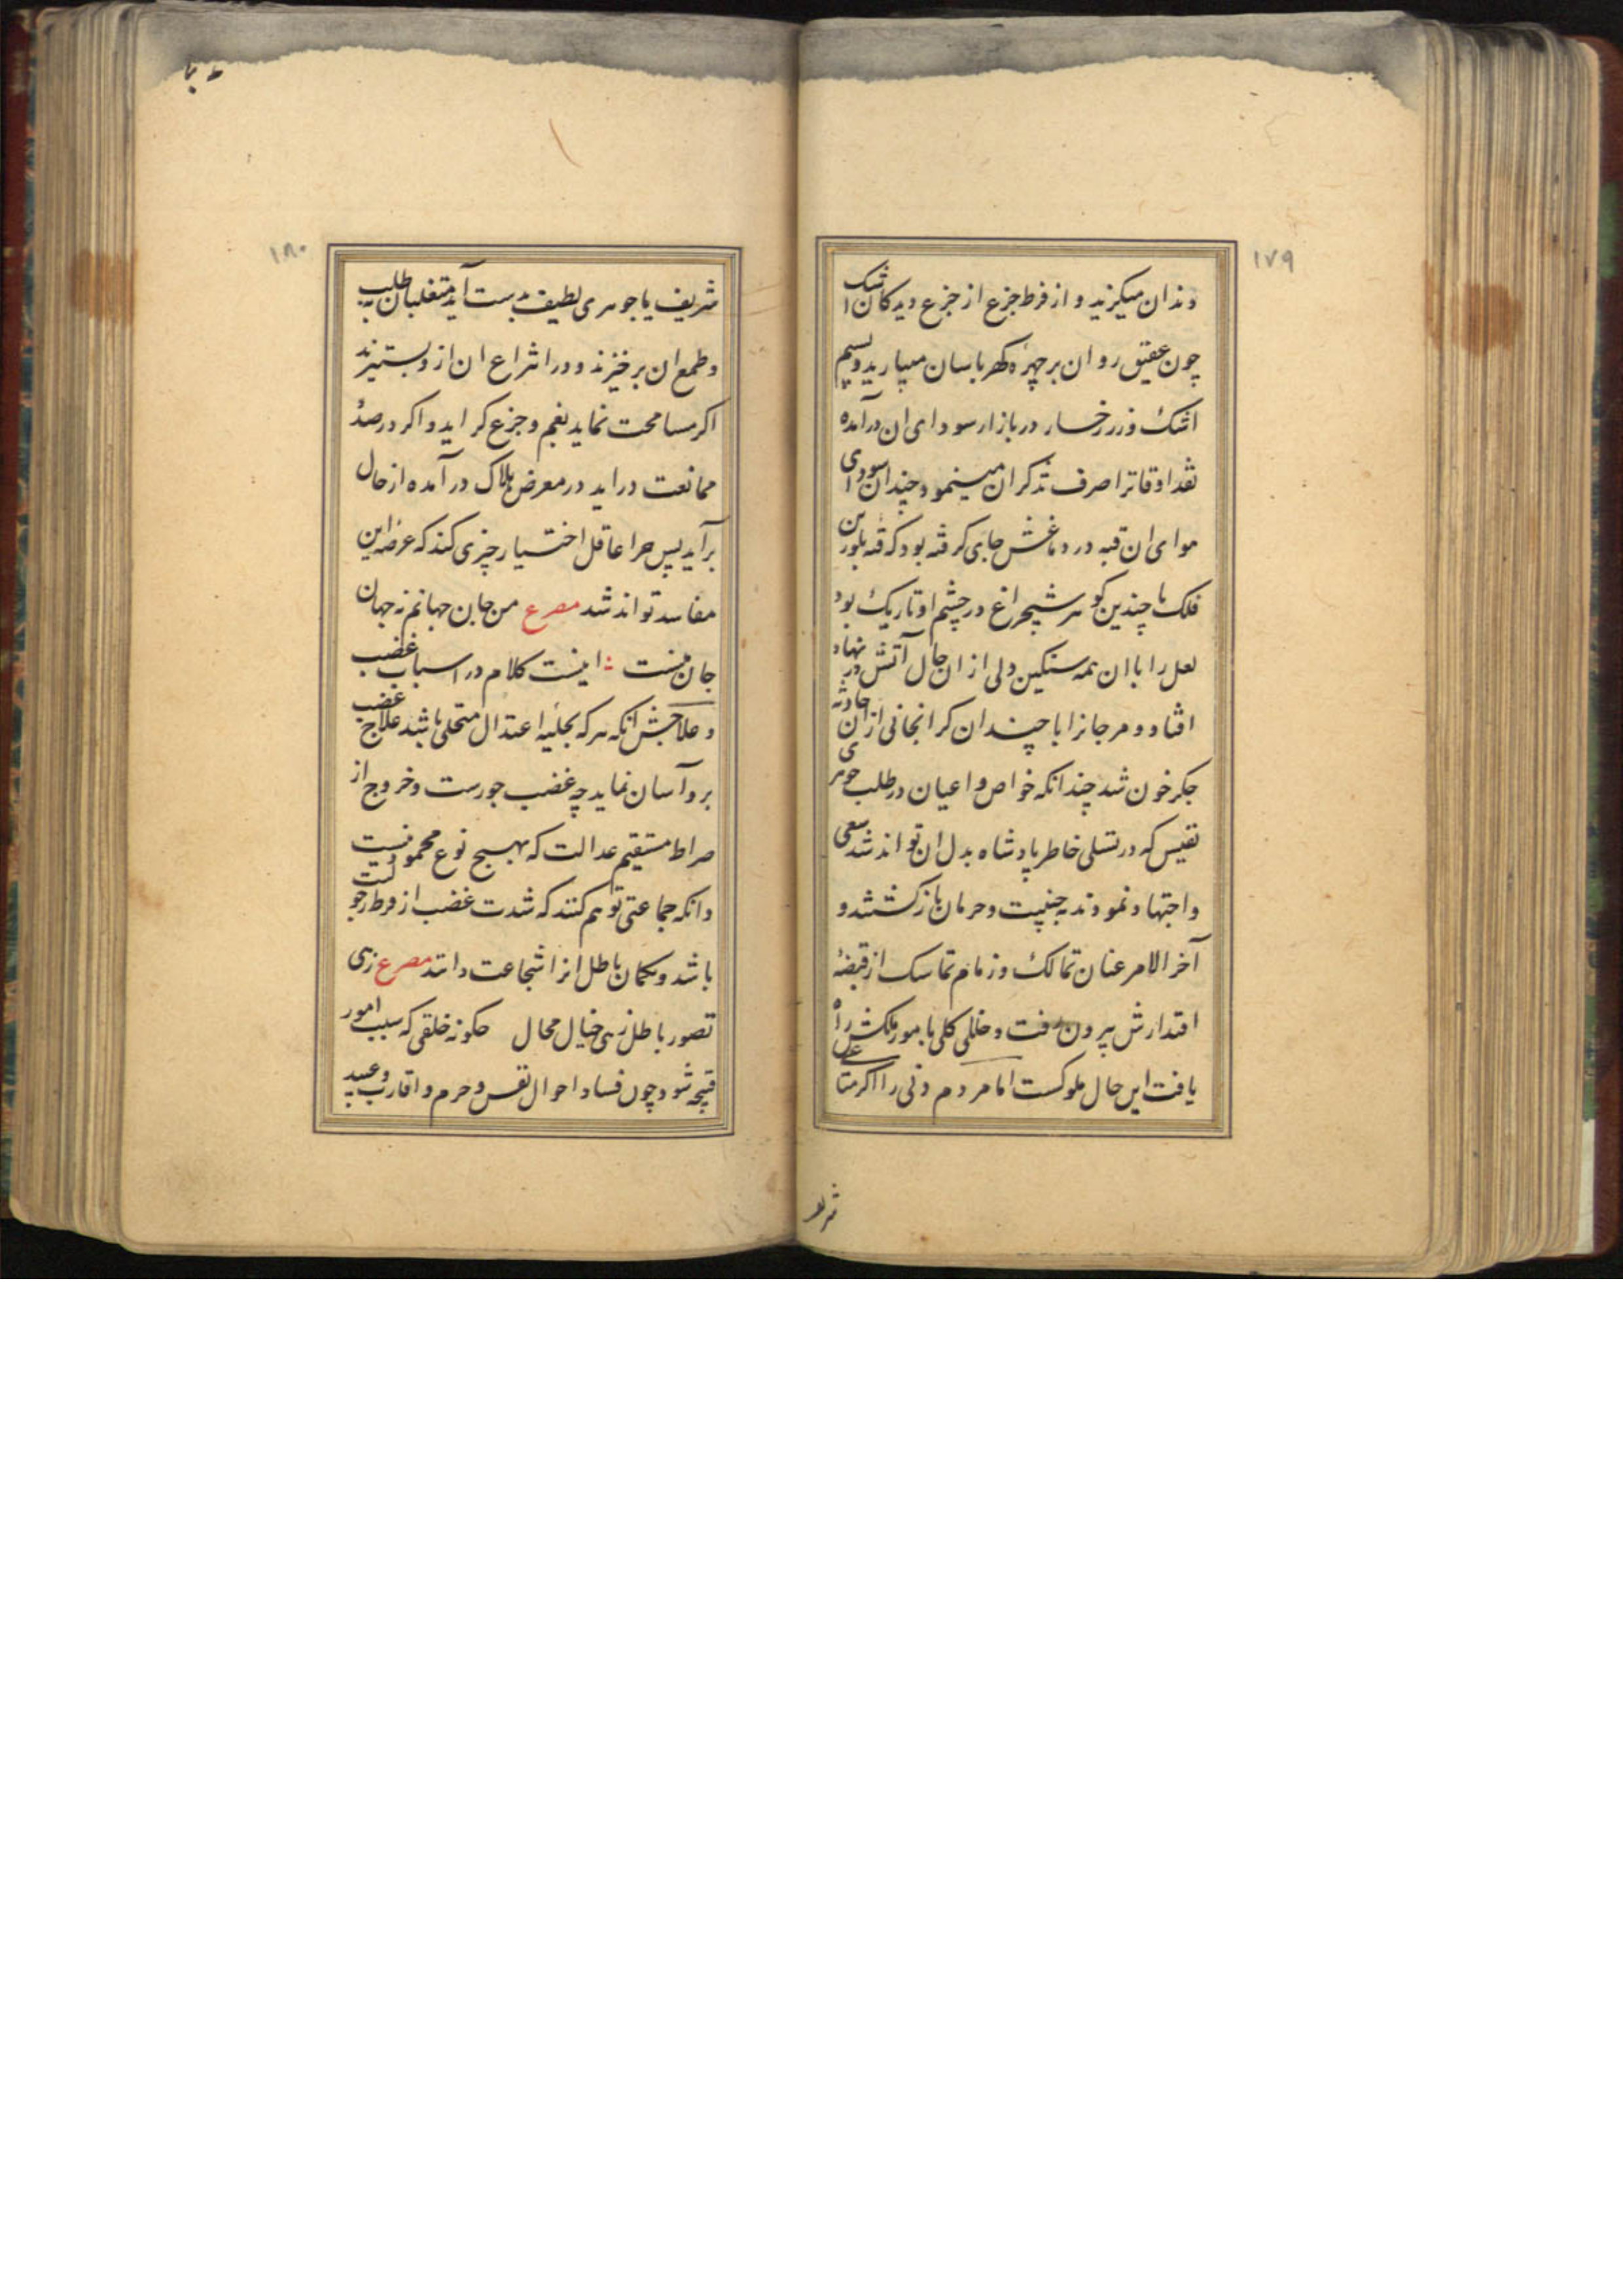 ۱۷۹
دندان میکزید و از فرط جزع از جزع دیدکان اشک
چون عقیق روان بر چهره کهرباسان میبارید و بسیم
اشک و زر رخسار در بازار سودای ان درآمده
نقد اوقاترا صرف تذکر ان مینمود و چندان سودای
هوای ان قبه در دماغش جای کرفته بود که قبه بلورین
فلک با چندین کوهر شبچراغ در چشم او تاریک بود
لعل را با ان همه سنکین دلی از ان حال آتش در نهاد
افتاد و مرجانرا با چندان کرانجانی از ان حادثه
جکر خون شد چندانکه خواص و اعیان در طلب جوهری
نفیس که در تسلی خاطر پادشاه بدل ان تواند شد سعی
و اجتهاد نمودند بخیبت و حرمان بازکشتند و
آخر الامر عنان تمالک و زمام تماسک از قبضهٔ
اقتدارش بیرون رفت و خللی کلی بامور ملکش راه
یافت این حال ملوکست اما مردم دنی را اکر متاعی
شریف
۱۸۰
شریف یا جوهری لطیف بدست آید متغلبان بطلب
و طمع ان برخیزند و در انتزاع ان ازو بستیزند
اکر مسامحت نماید بغم و جزع کراید و اکر در صدد
ممانعت دراید در معرض هلاک درآمده از حال
برآید پس چرا عاقل اختیار چیزی کند که عرضه این
مفاسد تواند شد مصرع من جان جهانم نه جهان
جان منست اینست کلام در اسباب غضب
و علاجش انکه هر که بحلیه اعتدال متحلی باشد علاج غضب
برو آسان نماید چه غضب جورست و خروج از
صراط مستقیم عدالت که بهیچ نوع محمود نیست
و انکه جماعتی توهم کنند که شدت غضب از فرط رجولیت
باشد و بکمان باطل انرا شجاعت دانند مصرع زهی
تصور باطل زهی خیال محال چکونه خلقی که سبب امور
قبیحه شود چون فساد احوال نفس و حرم و اقارب و عبید